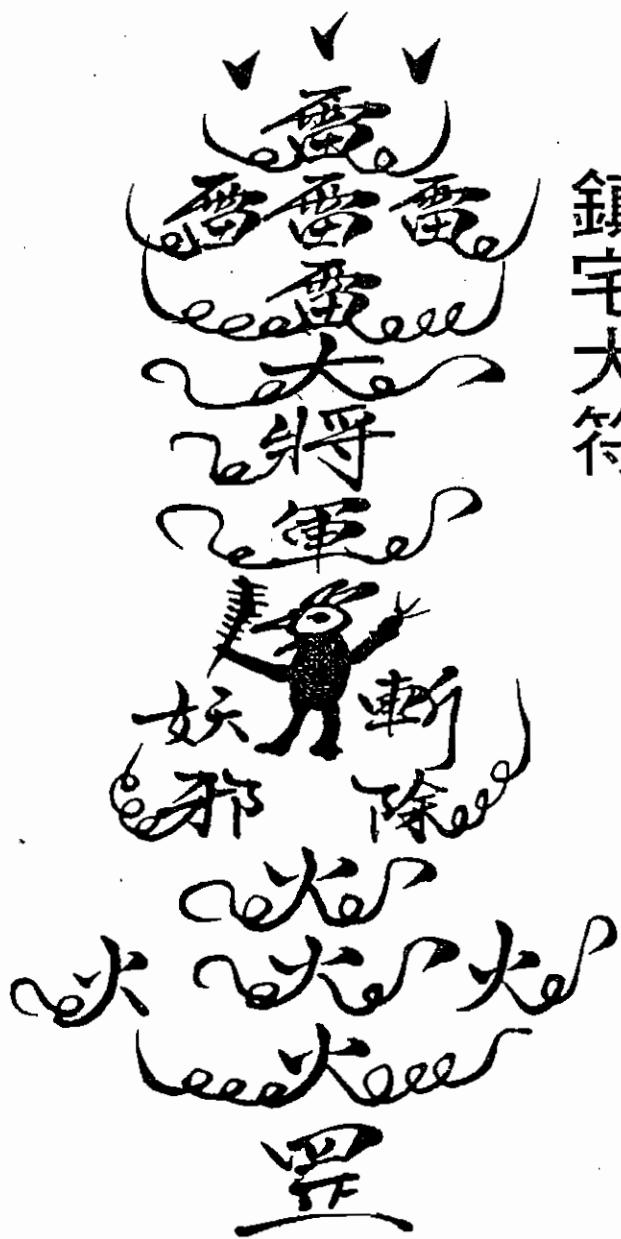 鎮宅大符
雷
雷雷雷
雷
大將軍
斬除
妖邪
火
火火火
火
罡